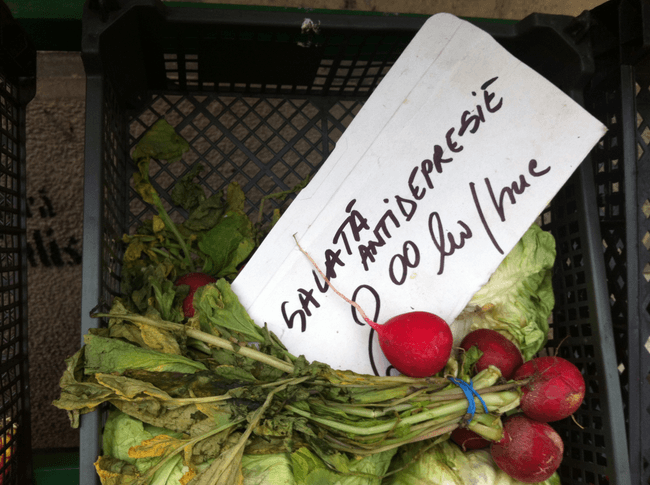 SALATĂ
ANTIDEPRESIE
00 lei/buc